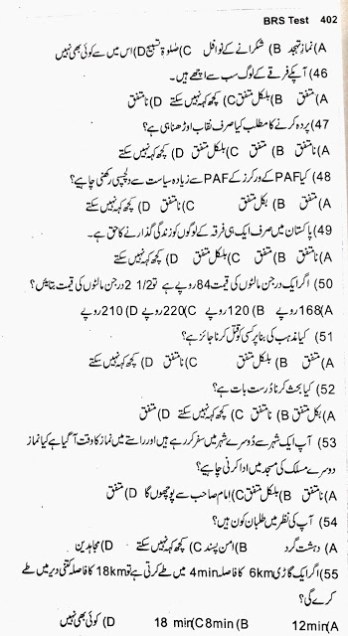 BRS Test 402
A) نماز تہجد B) شکرانے کے نوافل C) صلوٰۃ تسبیح D) اس میں سے کوئی بھی نہیں
46) آپکے فرقے کے لوگ سب سے اچھے ہیں۔
A) متفق B) بلکل متفق C) کچھ کہہ نہیں سکتے D) نا متفق
47) پردہ کرنے کا مطلب کیا صرف نقاب اوڑھنا ہی ہے؟
A) نا متفق B) متفق C) بلکل متفق D) کچھ کہہ نہیں سکتے
48) کیا PAF کے ورکرز کے PAF سے زیادہ سیاست سے دلچسپی رکھنی چاہیے؟
A) متفق B) بکل متفق C) نا متفق D) کچھ کہہ نہیں سکتے
49) پاکستان میں صرف ایک ہی فرقہ کے لوگوں کو زندگی گذارنے کا حق ہے۔
A) نا متفق B) متفق C) بلکل متفق D) کچھ کہہ نہیں سکتے
50) اگر ایک درجن مالٹوں کی قیمت 84 روپے ہے تو 2 1/2 درجن مالٹوں کی قیمت بتایئں؟
A) 168 روپے B) 120 روپے C) 220 روپے D) 210 روپے
51) کیا مذہب کی بنا پر کسی کو قتل کرنا جائز ہے؟
A) متفق B) بلکل متفق C) نا متفق D) کچھ کہہ نہیں سکتے
52) کیا بحث کرنا دُرست بات ہے؟
A) بکل متفق B) نا متفق C) کچھ کہہ نہیں سکتے D) متفق
53) آپ ایک شہر سے دُوسرے شہر میں سفر کر رہے ہیں اور راستے میں نماز کا وقت آ گیا ہے کیا نماز
دوسرے مسلک کی مسجد میں ادا کرنی چاہیے؟
A) نا متفق B) بلکل متفق C) امام صاحب سے پوچھوں گا D) متفق
54) آپ کی نظر میں طلبان کون ہیں؟
A) دہشت گرد B) امن پسند C) کچھ کہہ نہیں سکتے D) مجاہدین
55) اگر ایک گاڑی 6km کا فاصلہ 4min میں طے کرتی ہے تو 18km کا فاصلہ کتنی دیر میں طے
کرے گی؟
A) 12min B) 8min C) 18 min D) کوئی بھی نہیں